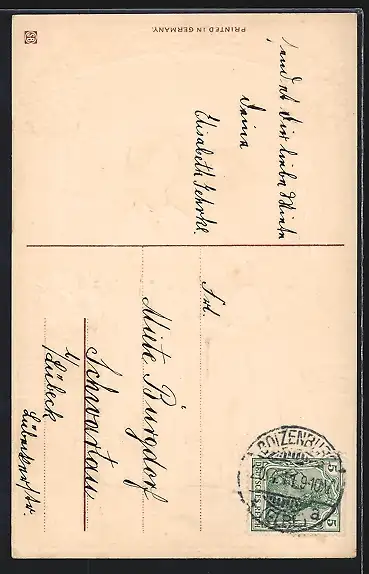 PRINTED IN GERMANY.
sendet Dir liebe Miete
Deine
Elisabeth Gehrke.
Frl.
Miete Burgdorf
Schwartau
b/
Lübeck
Lübeckerstr.
BOIZENBURG
(ELBE)
a
DEUTSCHES REICH
5 5